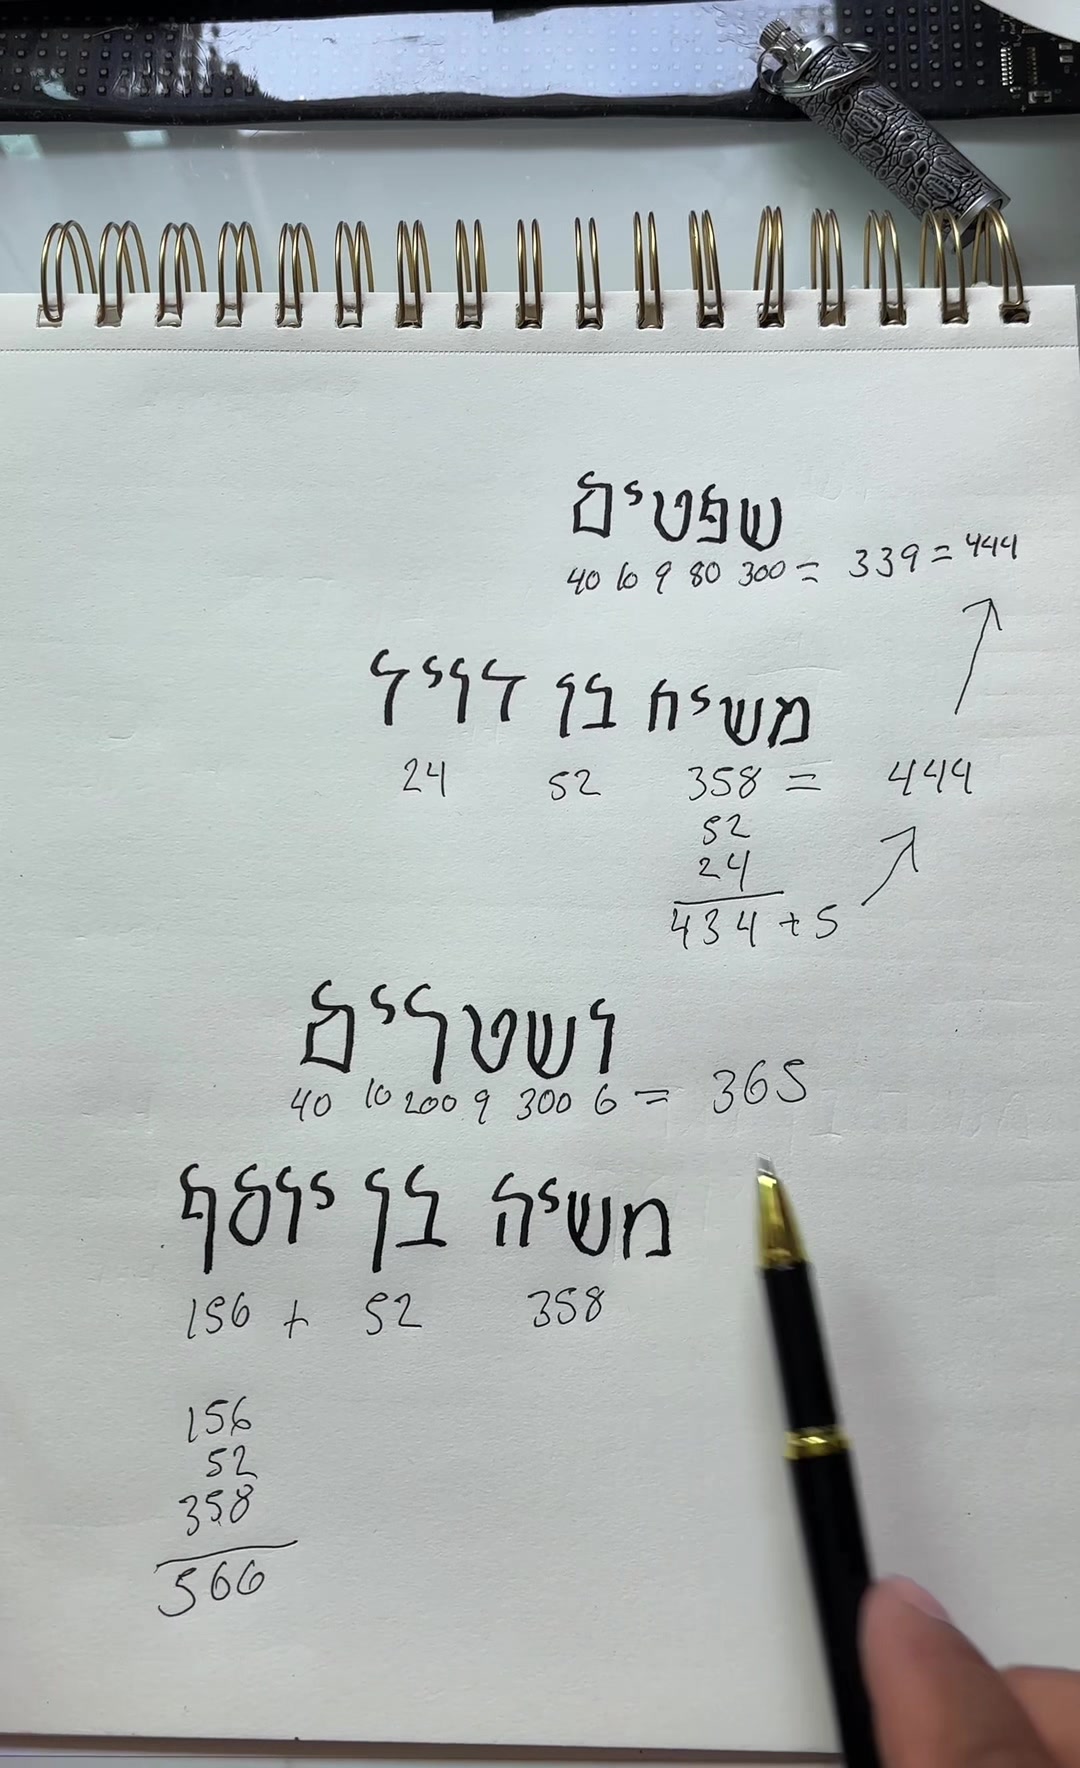 שפטים
40 10 9 80 300 = 339 = 444
משיח בן דויד
24 52 358 = 444
52
24
434 + 5
ושטרים
40 10 200 9 300 6 = 365
משיח בן יוסף
156 + 52 358
156
52
358
566